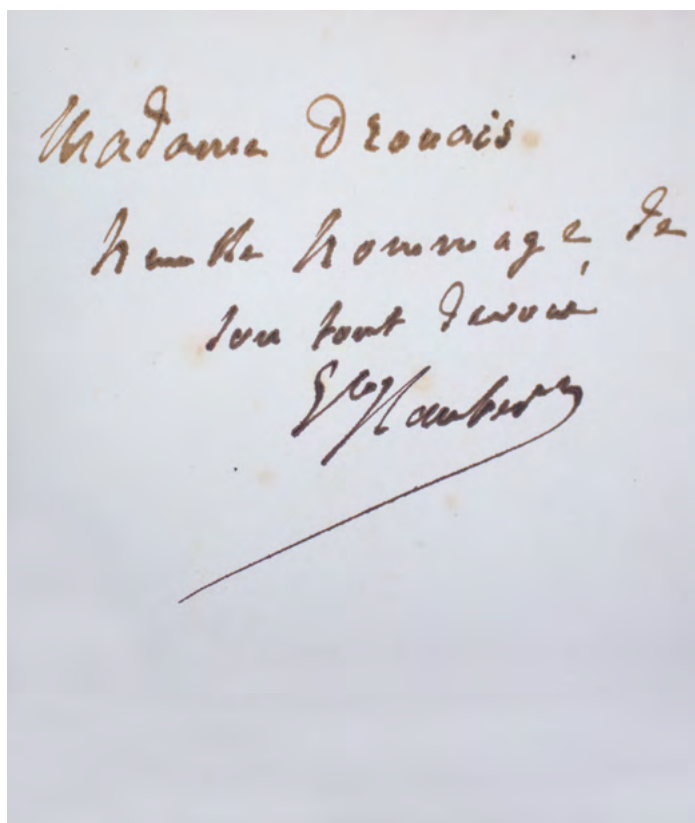 Madame Drouais
humble hommage de
son tout dévoué
Gve Flaubert